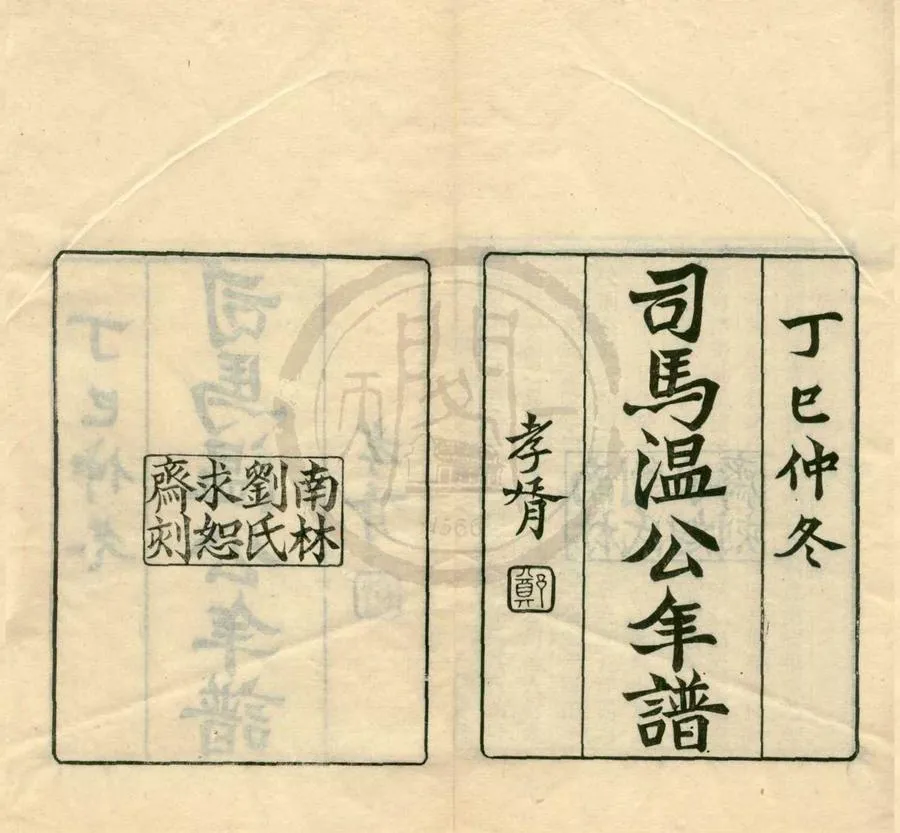 丁巳仲冬
司馬温公年譜
孝胥
鄭
南林
劉氏
求恕
齋刻
1566